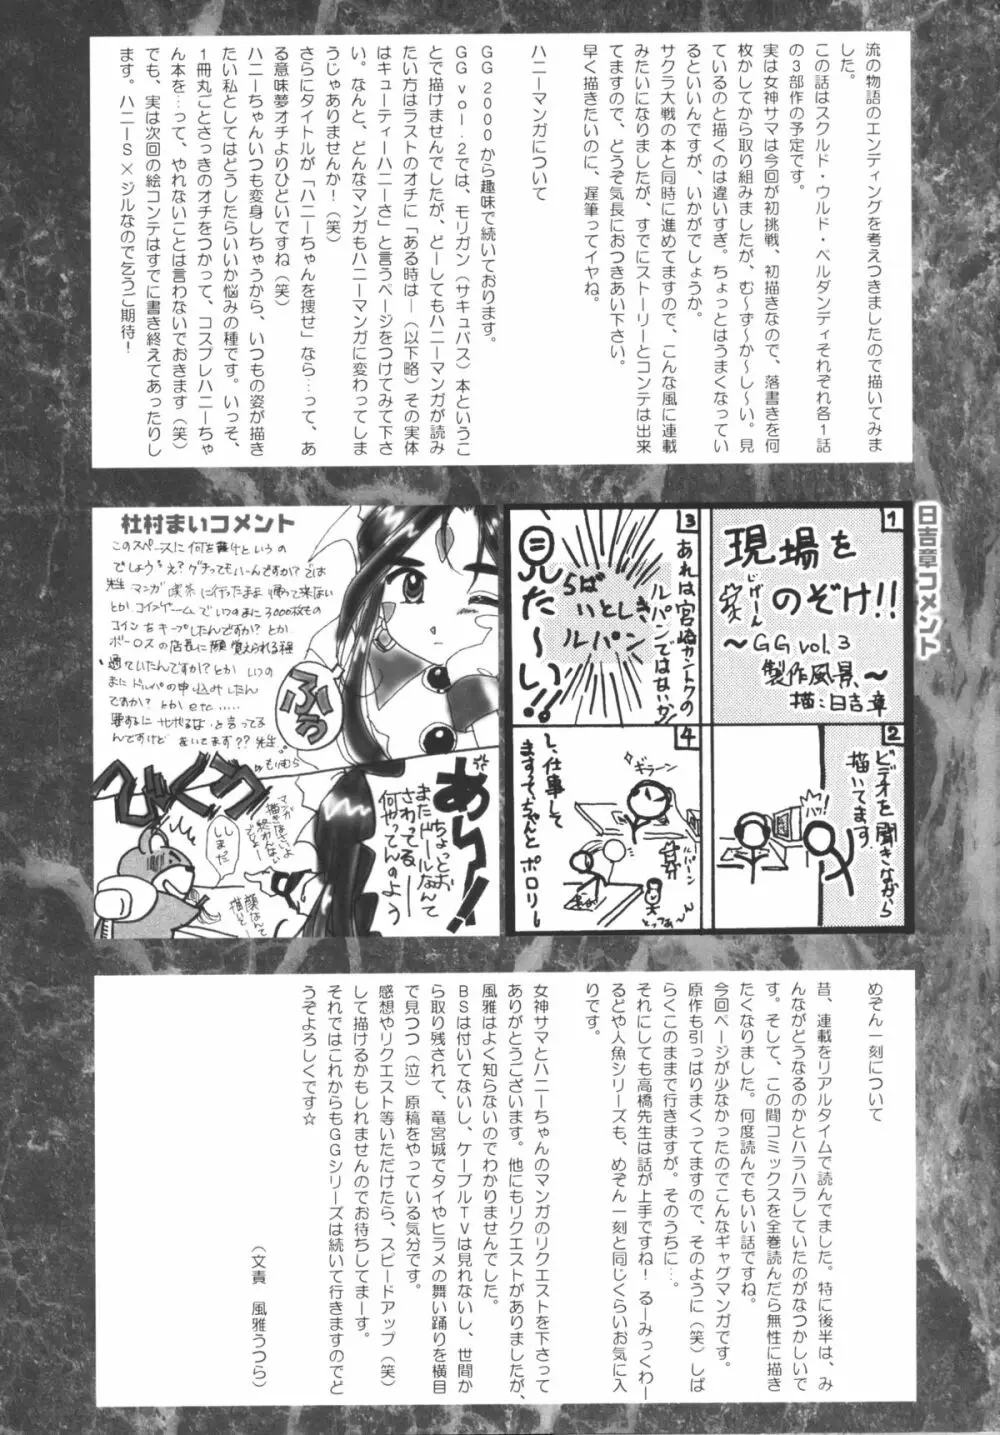 流の物語のエンディングを考えつきましたので描いてみま
した。
この話はスクルド・ウルド・ベルダンディそれぞれ各1話
の3部作の予定です。
実は女神サマは今回が初挑戦、初描きなので、落書きを何
枚かしてから取り組みましたが、む～ず～か～し～い。見
ているのと描くのは違いすぎ。ちょっとはうまくなってい
るといいんですが、いかがでしょうか。
サクラ大戦の本と同時に進めてますので、こんな風に連載
みたいになりましたが、すでにストーリーとコンテは出来
てますので、どうぞ気長におつきあい下さい。
早く描きたいのに、遅筆ってイヤね。
ハニーマンガについて
GG2000から趣味で続いております。
GGvol.2では、モリガン（サキュバス）本というこ
とで描けませんでしたが、どーしてもハニーマンガが読み
たい方はラストのオチに「ある時は―（以下略）その実体
はキューティーハニーさ」と言うページをつけてみて下さ
い。なんと、どんなマンガもハニーマンガに変わってしま
うじゃありませんか！（笑）
さらにタイトルが「ハニーちゃんを捜せ」なら…って、あ
る意味夢オチよりひどいですね（笑）
ハニーちゃんいつも変身しちゃうから、いつもの姿が描き
たい私としてはどうしたらいいか悩みの種です。いっそ、
1冊丸ごとさっきのオチをつかって、コスプレハニーちゃ
ん本を…って、やれないことは言わないでおきます（笑）
でも、実は次回の絵コンテはすでに書き終えてあったりし
ます。ハニーS×ジルなので乞うご期待！
日吉章コメント
1
現場を
のぞけ!!
～GG vol.3
製作風景～
描:日吉章
2
ビデオを聞きながら
描いてます。
3
あれは宮崎カントクの
ルパンではないか!
らぱ
いとしき
ルパン
見た～い!!
4
ギラーン
ルパーン
とっつあ～ん
し、仕事して
ますって、ちゃんと
ポロリー
杜村まいコメント
このスペースに何を書けというの
でしょう?え?グチってもいーんですか?では
先生マンガ喫茶に行ったまま帰って来ない
とかコインゲームでいつのまに3000枚もの
コインをキープしたんですか?とか
ボーロスの店長に顔覚えられる程
通っていたんですか?とかいつの
まにドルパの申込みしたん
ですか?とかetc.....
要するにサボるなと言ってる
んですけどきいてます??先生
もりむら
ふっ
びくっ
しまだ
あらー!
ちょっとお
さわってる―
またドールなんて
何やってんのよう
めぞん一刻について
昔、連載をリアルタイムで読んでました。特に後半は、み
んながどうなるのかとハラハラしていたのがなつかしいで
す。そして、この間コミックスを全巻読んだら無性に描き
たくなりました。何度読んでもいい話ですね。
今回ページが少なかったのでこんなギャグマンガです。
原作も引っぱりまくってますので、そのように（笑）しば
らくこのままで行きますが。そのうちに…。
それにしても高橋先生は話が上手ですね！るーみっくわー
るどや人魚シリーズも、めぞん一刻と同じくらいお気に入
りです。
女神サマとハニーちゃんのマンガのリクエストを下さって
ありがとうございます。他にもリクエストがありましたが、
風雅はよく知らないのでわかりませんでした。
BSは付いてないし、ケーブルTVは見れないし、世間か
ら取り残されて、竜宮城でタイやヒラメの舞い踊りを横目
で見つつ（泣）原稿をやっている気分です。
感想やリクエスト等いただけたら、スピードアップ（笑）
して描けるかもしれませんのでお待ちしてまーす。
それではこれからもGGシリーズは続いて行きますのでど
うぞよろしくです☆
（文責　風雅うつら）